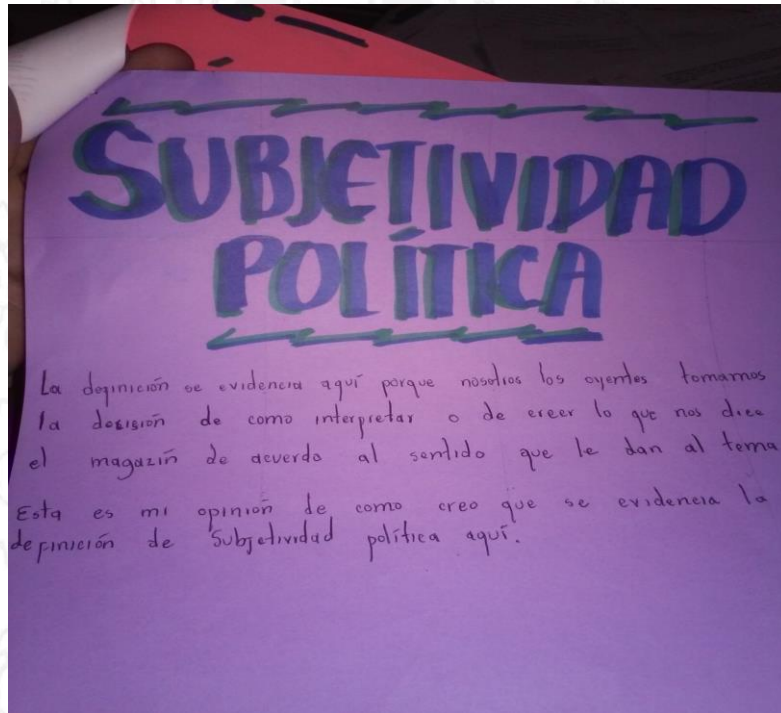 SUBJETIVIDAD
POLÍTICA
La definición se evidencia aquí porque nosotros los oyentes tomamos
la desisión de como interpretar o de creer lo que nos dice
el magazín de acuerdo al sentido que le dan al tema
Esta es mi opinión de como creo que se evidencia la
definición de Subjetividad política aquí.